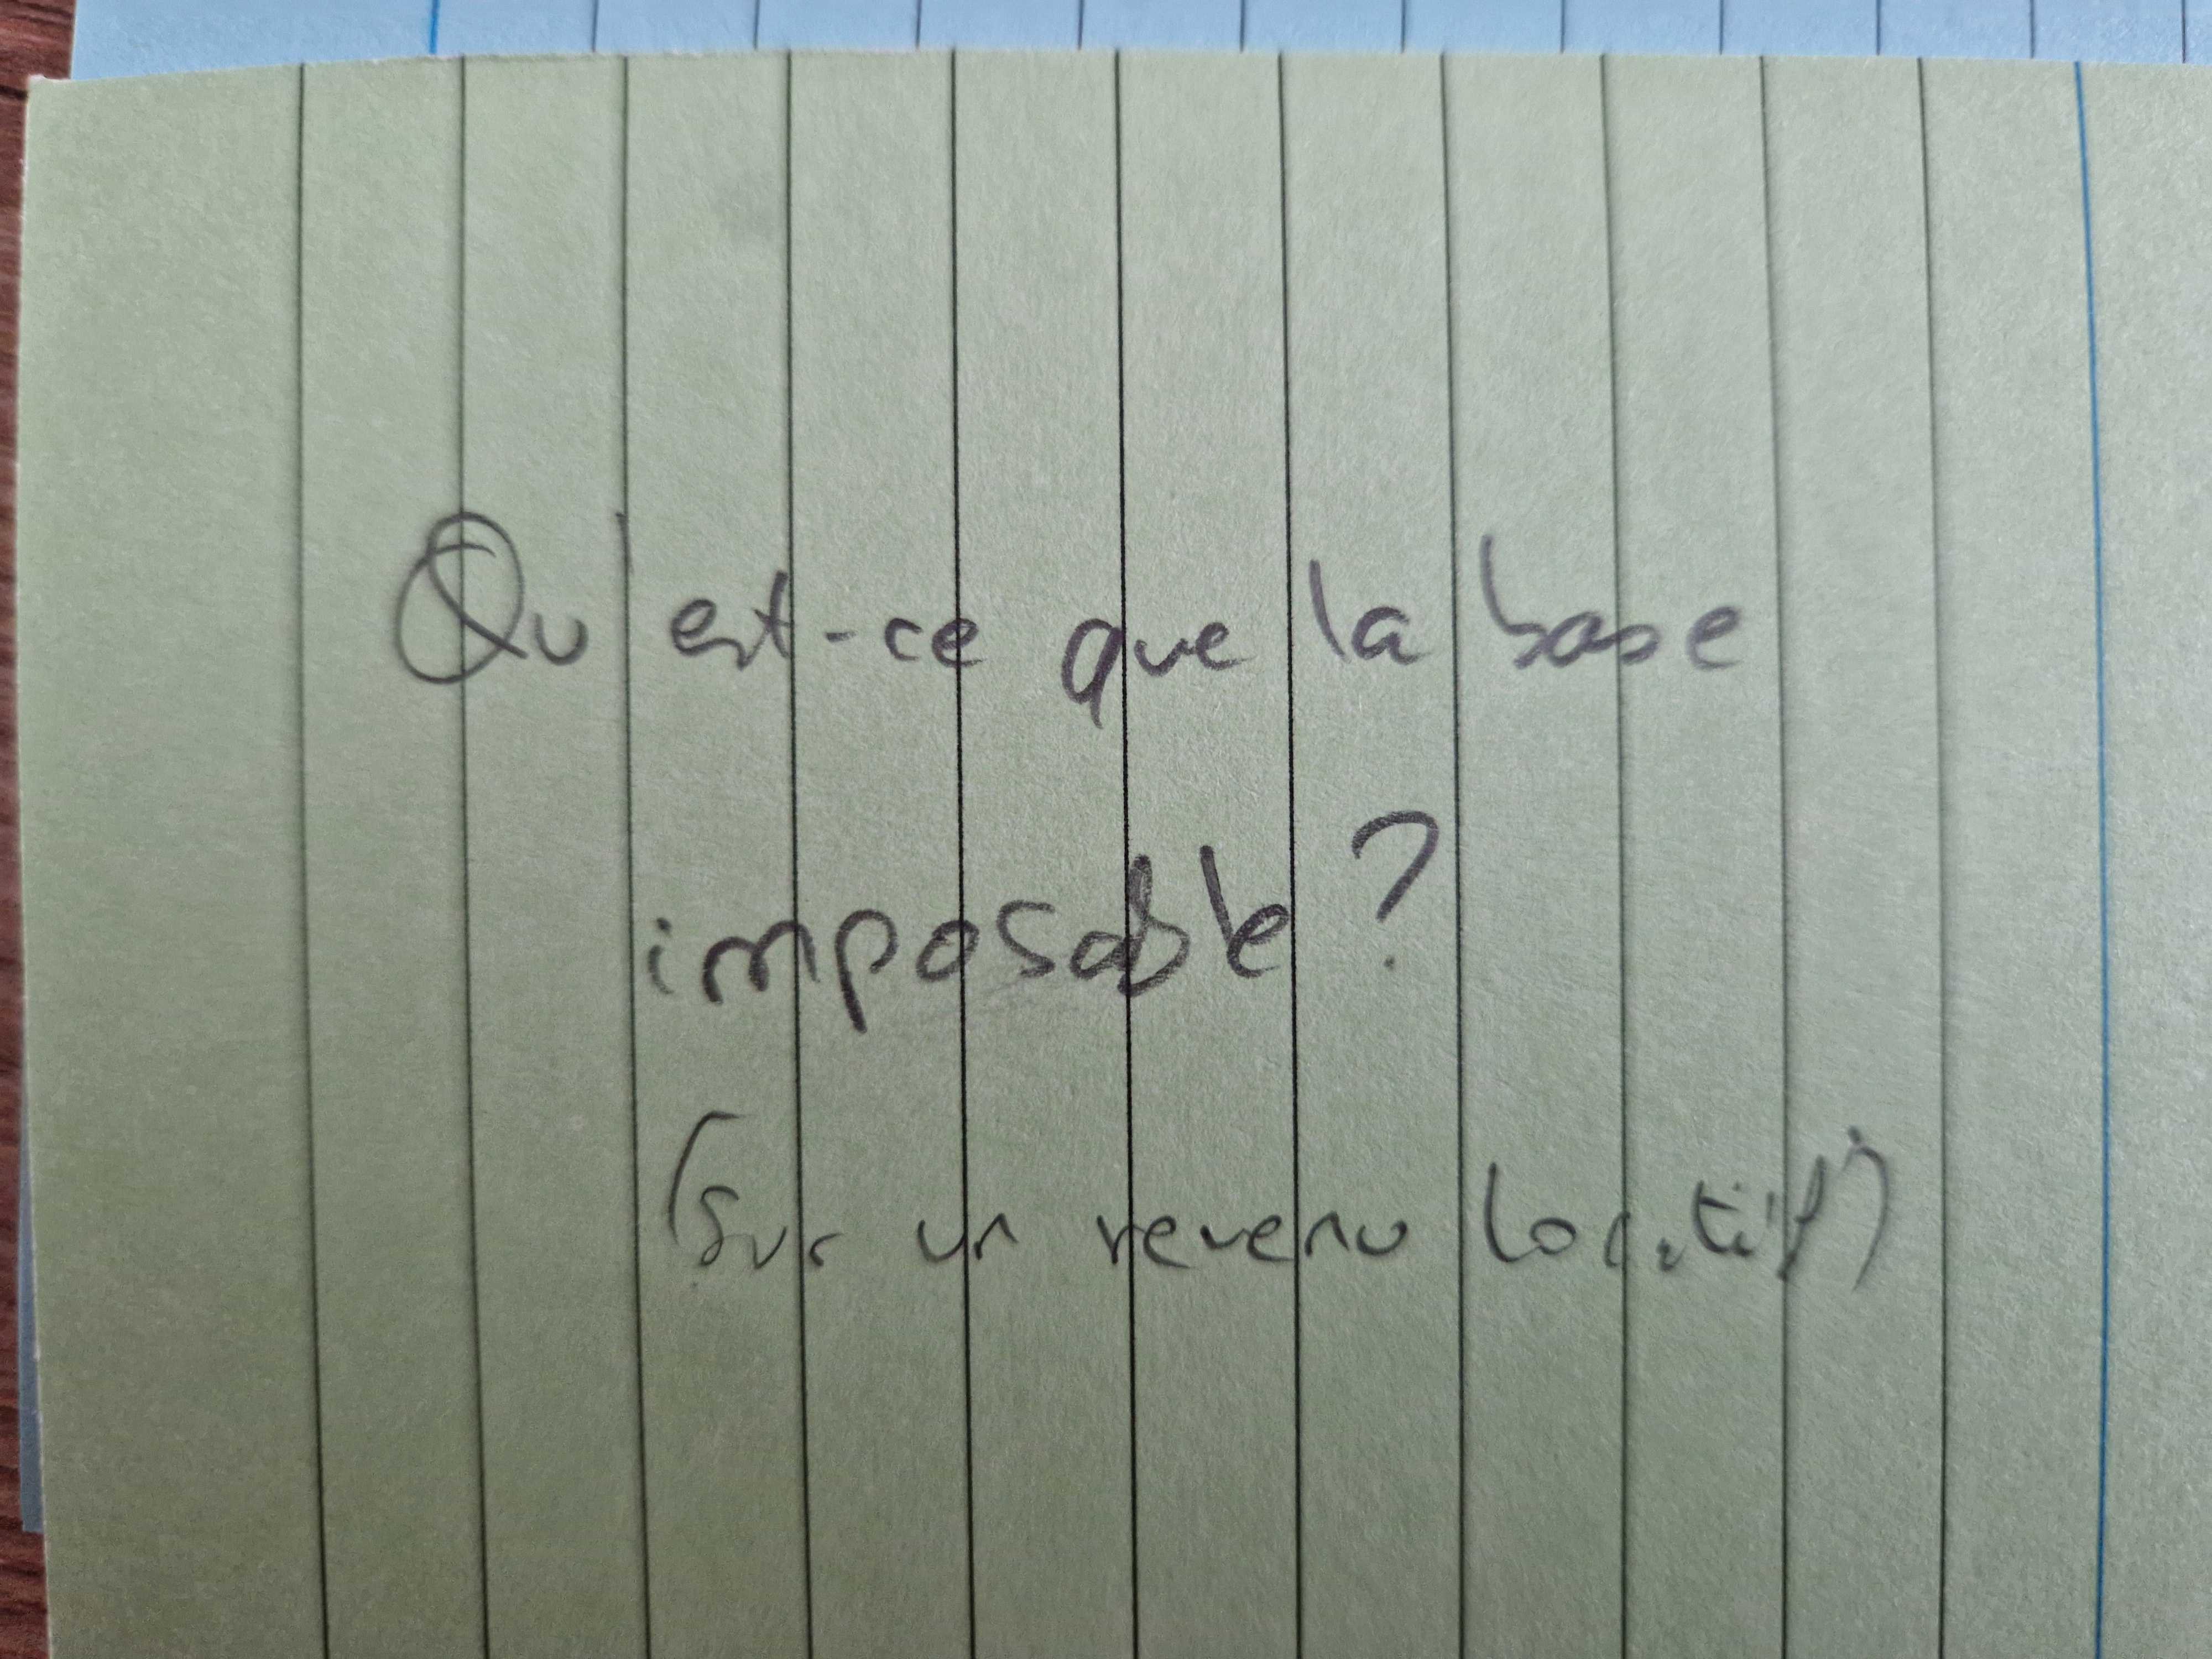 Qu'est-ce que la base
imposable ?
(sur un revenu locatif)